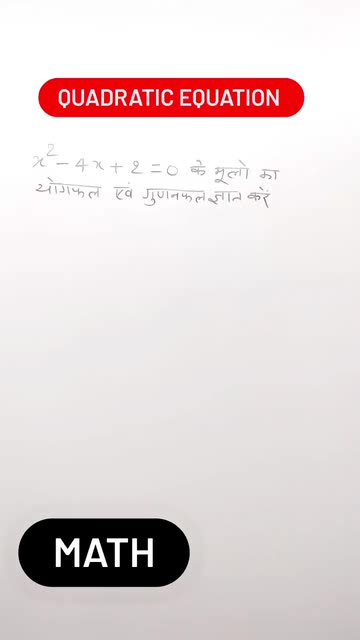 QUADRATIC EQUATION
x² - 4x + 2 = 0 के मूलो का
योगफल एवं गुणनफल ज्ञात करें
MATH